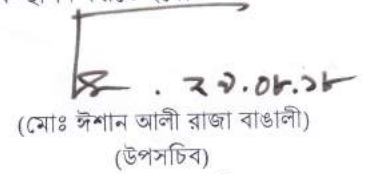 ২৩.০৮.১৮
(মোঃ ঈশান আলী রাজা বাঙালী)
(উপসচিব)